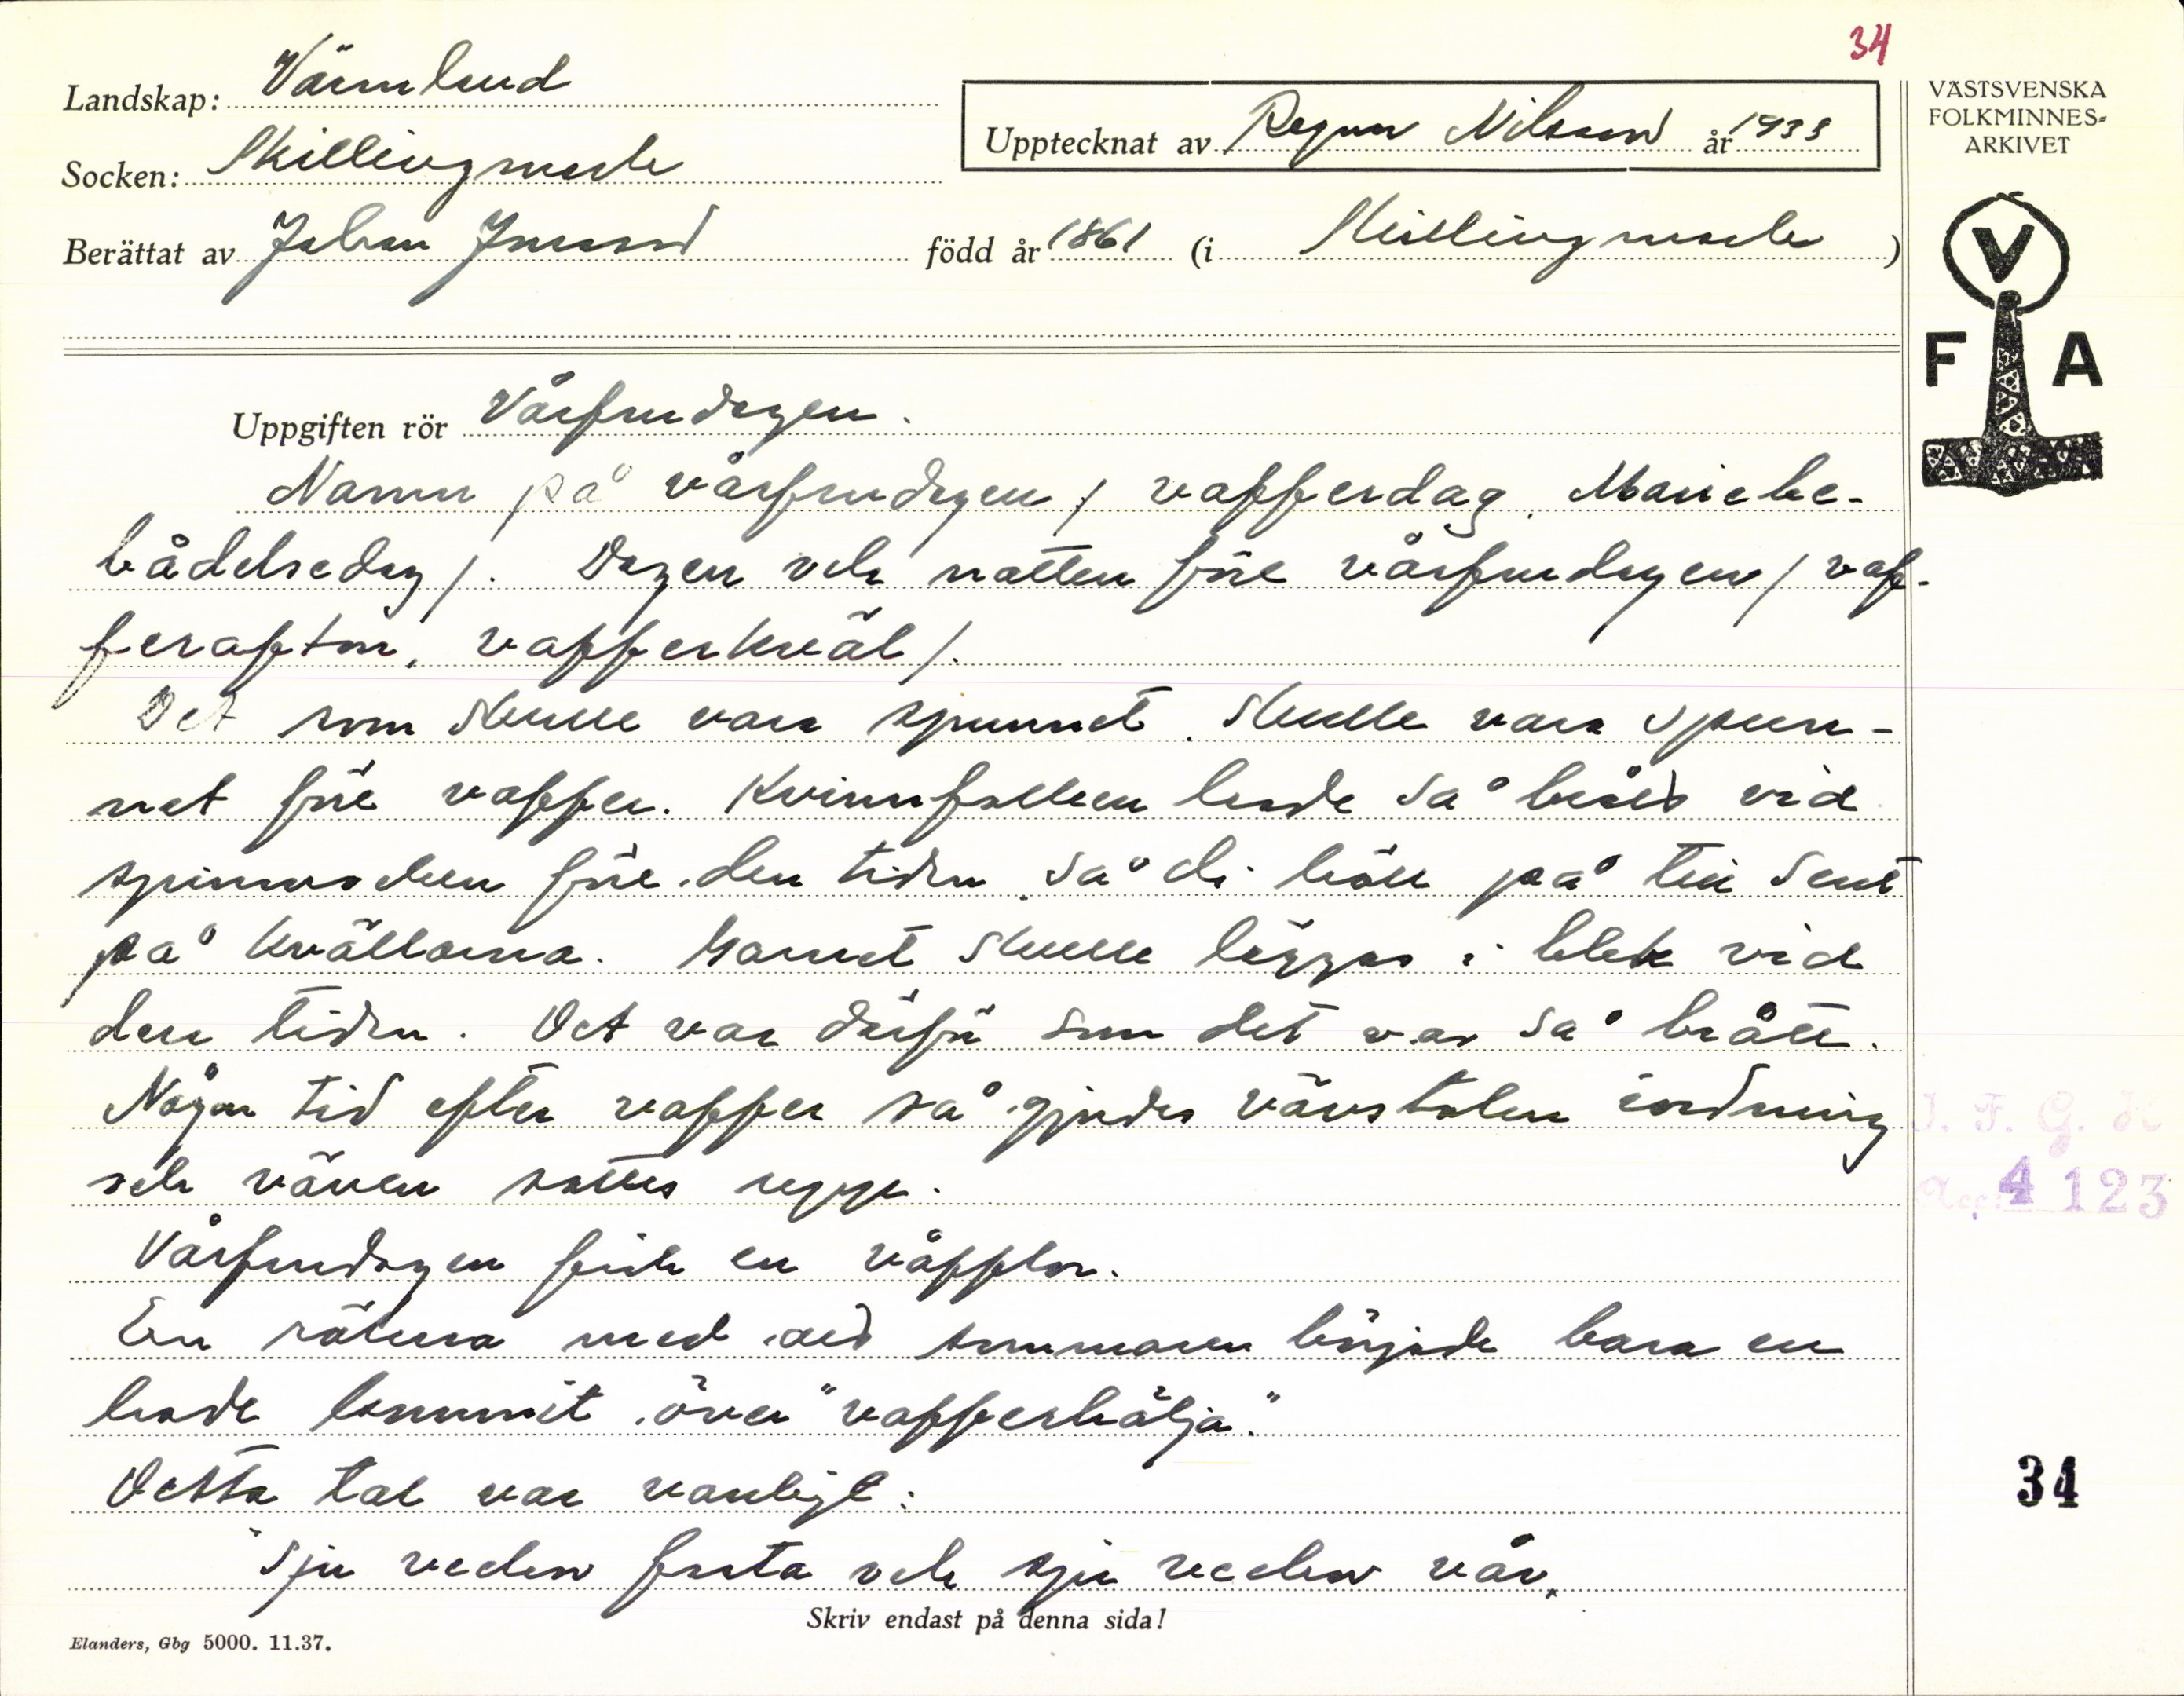 34
Landskap: Värmland
Upptecknat av Ragnar Nilsson år 1938
Socken: Skillingmark
Berättat av Johan Jonsson född år 1861 (i Skillingmark)
VÄSTSVENSKA
FOLKMINNES-
ARKIVET
V
F A
Uppgiften rör Vårfrudagen.
Namn på vårfrudagen / vafferdag, Marie be-
bådelsedag /. Dagen och natten före vårfrudagen / vaf-
ferafton, vafferkväl /.
Det som skulle vara spunnet, skulle vara spun-
net före vaffer. Kvinnfolken hade så bråd vid
spinnrocken före den tiden så di höll på till sent
på kvällarna. Garnet skulle läggas i blek vid
den tiden. Det var därför som det var så brått.
Någon tid efter vaffer så gjordes vävstolen iordning
och väven sattes upp.
Vårfrudagen fick en våfflor.
En räkna med att sommaren började bara en
hade kommit över "vafferhälja."
Detta tal var vanligt:
"Sju veckor fasta och sju veckor vår,
Skriv endast på denna sida!
Elanders, Gbg 5000. 11.37.
I. F. G. H
Acc: 4 123
34